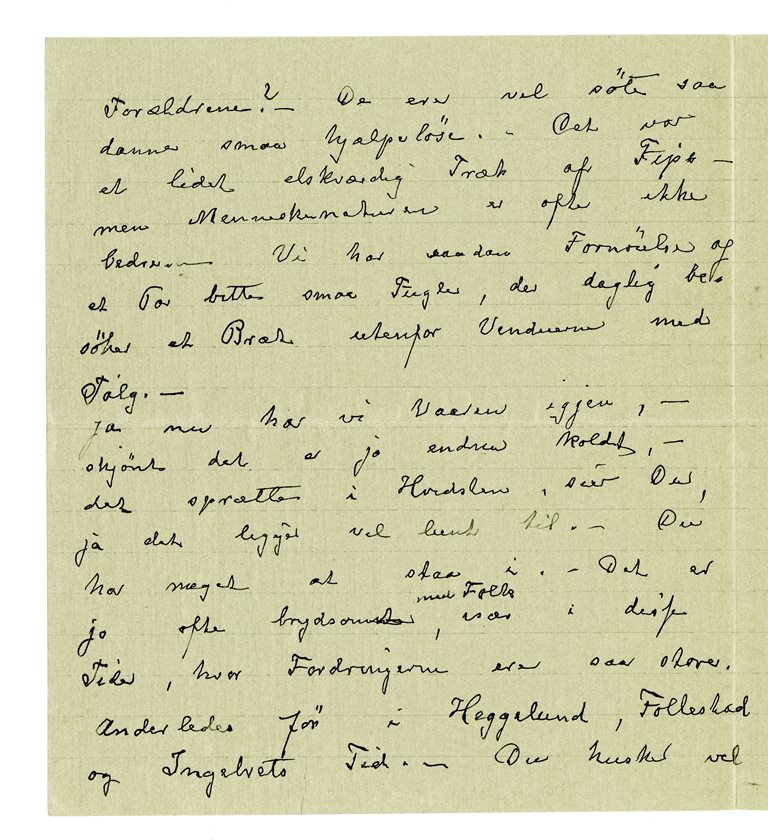 Forældrene? — De ere vel söte saa
danne smaa hjælpelöse. - Det var
et lidet elskværdig Træk af Fips —
men Menneskenaturen er ofte ikke
bedre. — Vi har saadan Fornöielse og
et Par bitte smaa Fugle, der daglig be-
söker et Bræt utenfor Vinduerne med
Talg. —
Ja nu har vi Vaaren igjen, —
skjönt det er jo endnu koldt, —
det sprætter i Hvidslen, siér Du,
ja det ligger vel lunt til. — Du
har meget at staa i. - Det er
jo ofte brydsomt med Folk, især i disse
Tider, hvor Fordringerne ere saa store.
Anderledes för i Heggelund, Follestad
og Ingelvets Tid. — Du husker vel